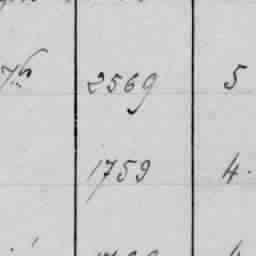 7h 2569 5
1759 4.